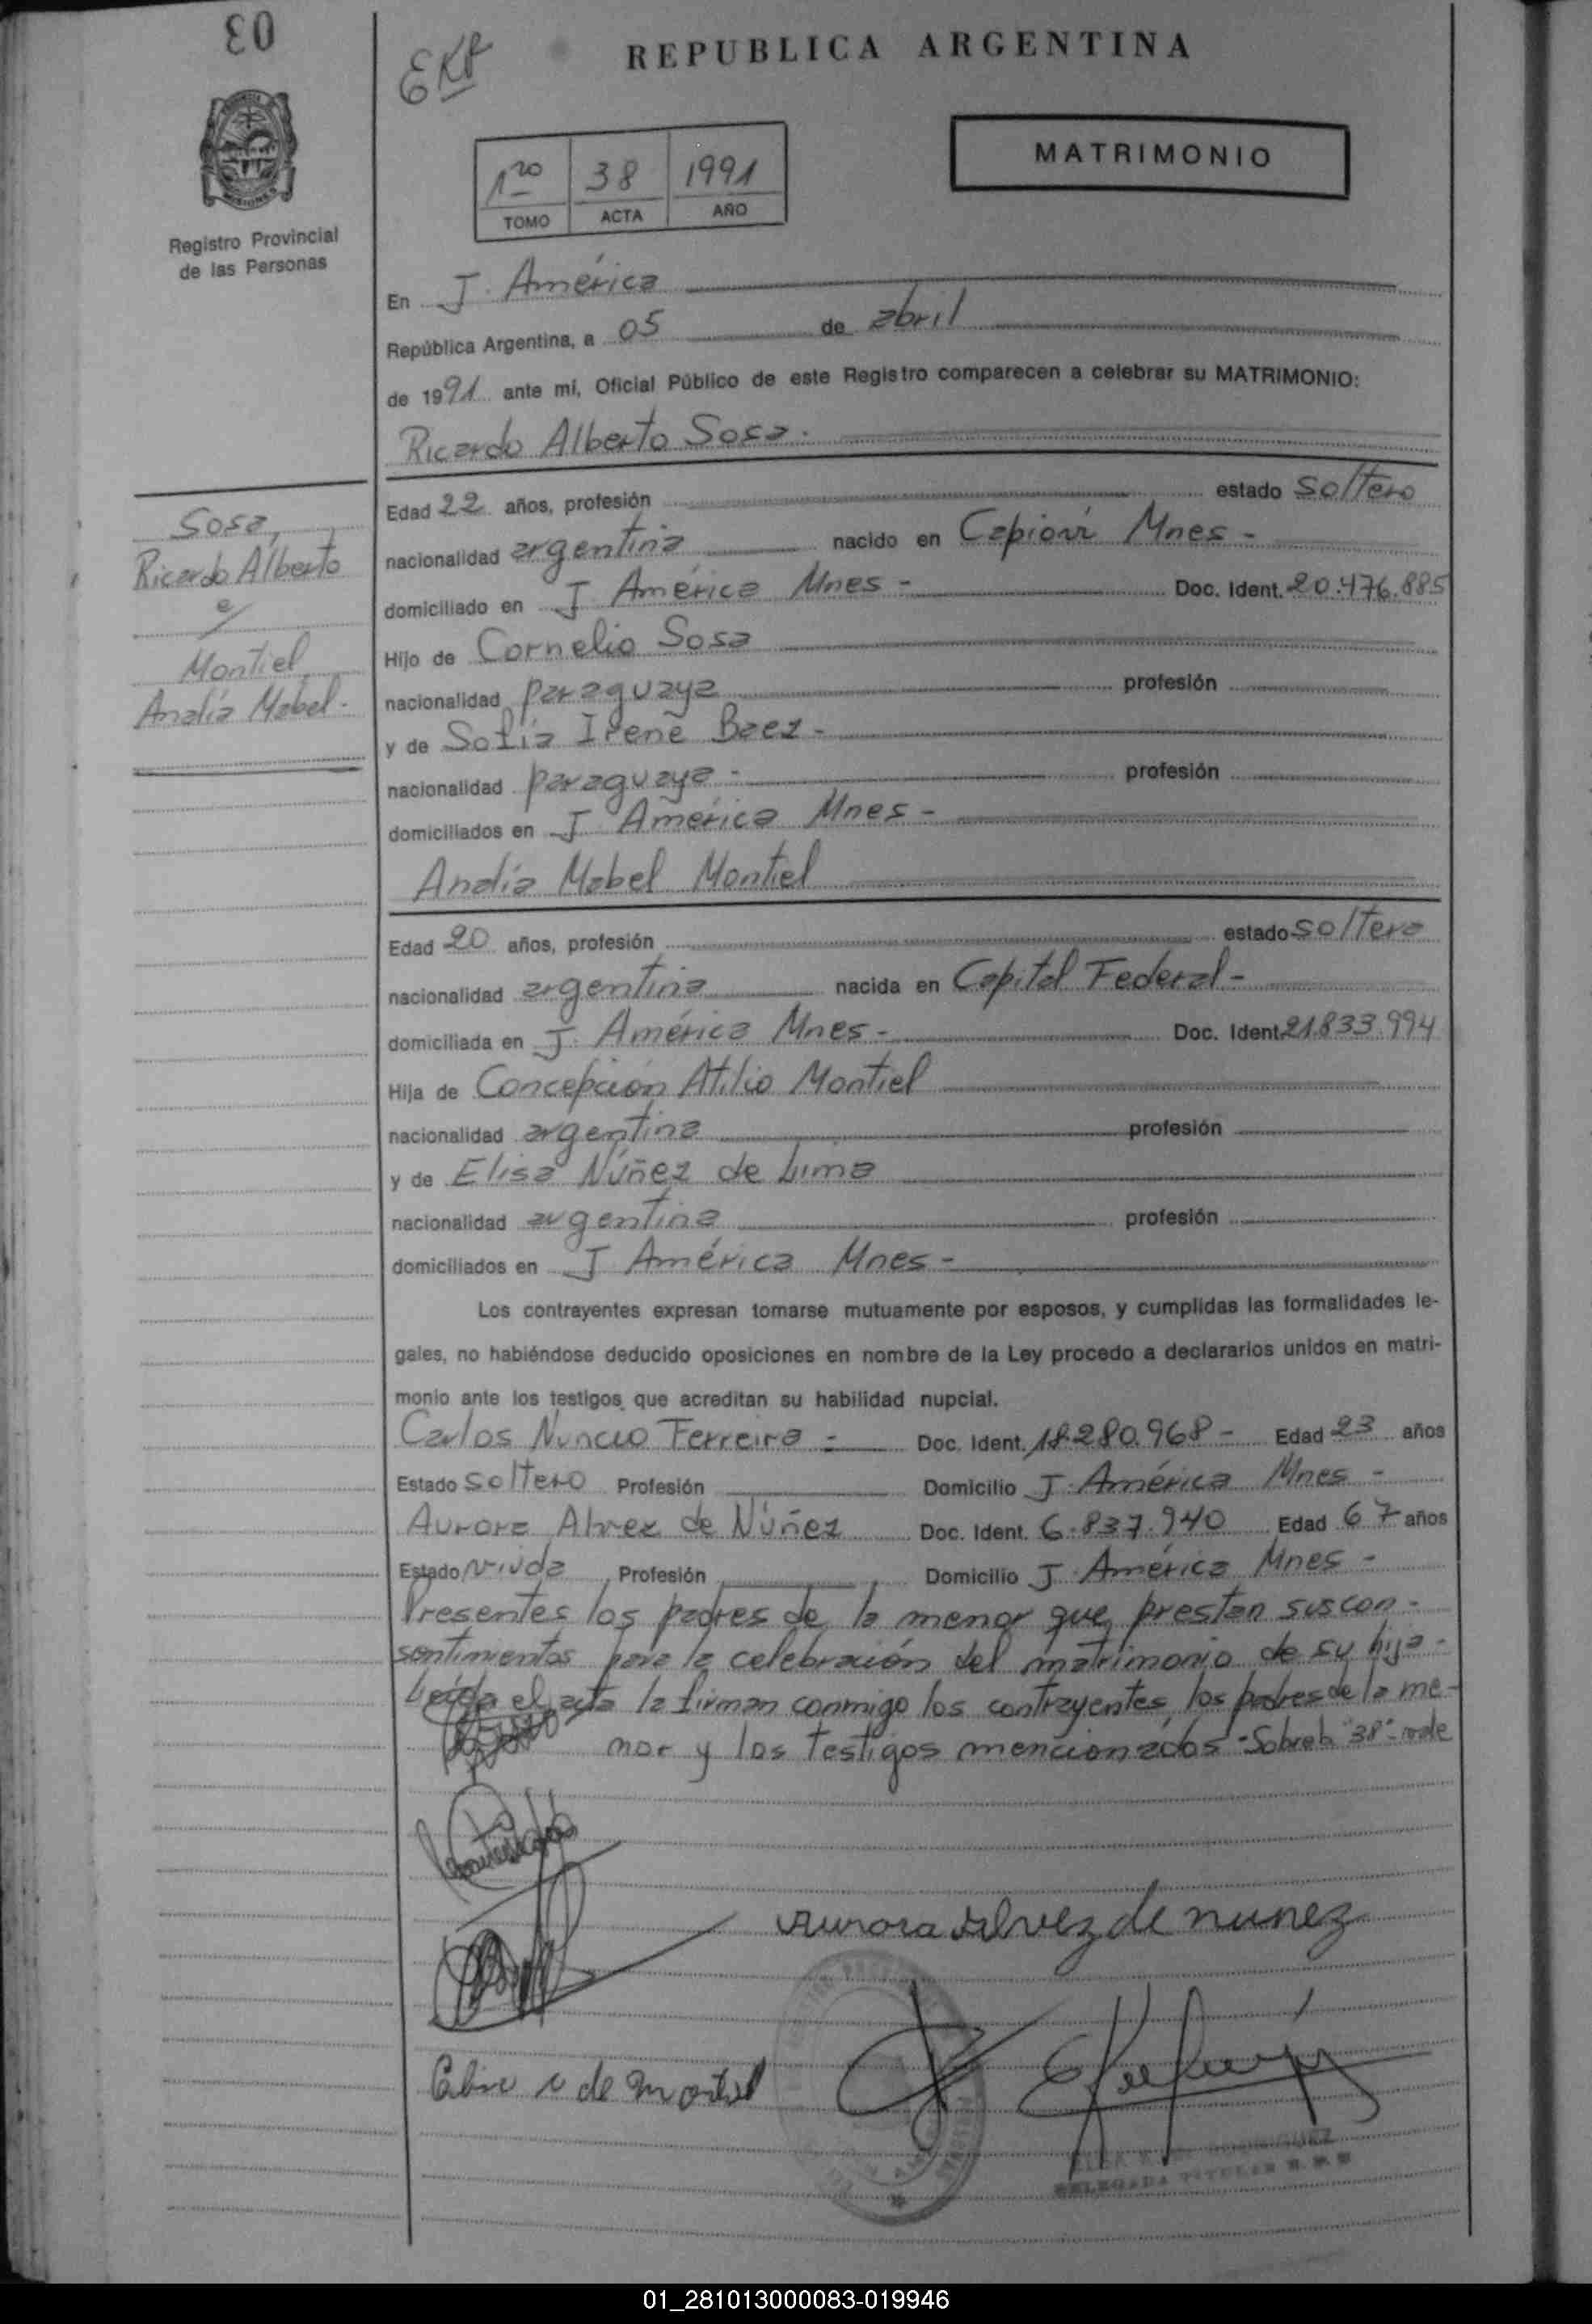 03
REPUBLICA ARGENTINA
MATRIMONIO
1ro 38 1991
TOMO ACTA AÑO
Registro Provincial
de las Personas
En J. América
República Argentina, a 05 de abril
de 1991 ante mí, Oficial Público de este Registro comparecen a celebrar su MATRIMONIO:
Ricardo Alberto Sosa.
Sosa,
Ricardo Alberto
c/
Montiel
Analía Mabel.
Edad 22 años, profesión estado soltero
nacionalidad argentina nacido en Capioví Mnes -
domiciliado en J. América Mnes - Doc. Ident. 20.476.885
Hijo de Cornelio Sosa
nacionalidad paraguaya profesión
y de Sofía Irene Baez -
nacionalidad paraguaya - profesión
domiciliados en J América Mnes -
Analía Mabel Montiel
Edad 20 años, profesión estado soltera
nacionalidad argentina nacida en Capital Federal -
domiciliada en J. América Mnes - Doc. Ident. 21.833.994
Hija de Concepción Atilio Montiel
nacionalidad argentina profesión
y de Elisa Núñez de Lima
nacionalidad argentina profesión
domiciliados en J América Mnes -
Los contrayentes expresan tomarse mutuamente por esposos, y cumplidas las formalidades le-
gales, no habiéndose deducido oposiciones en nombre de la Ley procedo a declararlos unidos en matri-
monio ante los testigos que acreditan su habilidad nupcial.
Carlos Nuncio Ferreira - Doc. Ident. 18.280.968 - Edad 23 años
Estado soltero Profesión Domicilio J. América Mnes -
Aurora Alvez de Núñez Doc. Ident. 6.837.940 Edad 67 años
Estado viuda Profesión Domicilio J. América Mnes -
Presentes los padres de la menor que prestan sus con-
sentimientos para la celebración del matrimonio de su hija -
Leída el acta la firman conmigo los contrayentes, los padres de la me-
nor y los testigos mencionados - "38" - vale
Aurora Alvez de nunez
de Montiel
DELEGADA TITULAR R. P. P.
01_281013000083-019946